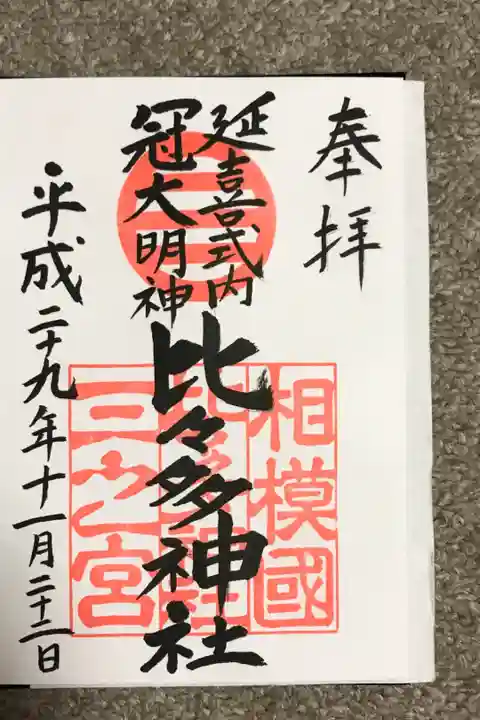 奉拝
延喜式内
冠大明神
比々多神社
相模國
三之宮
平成二十九年十一月二十二日